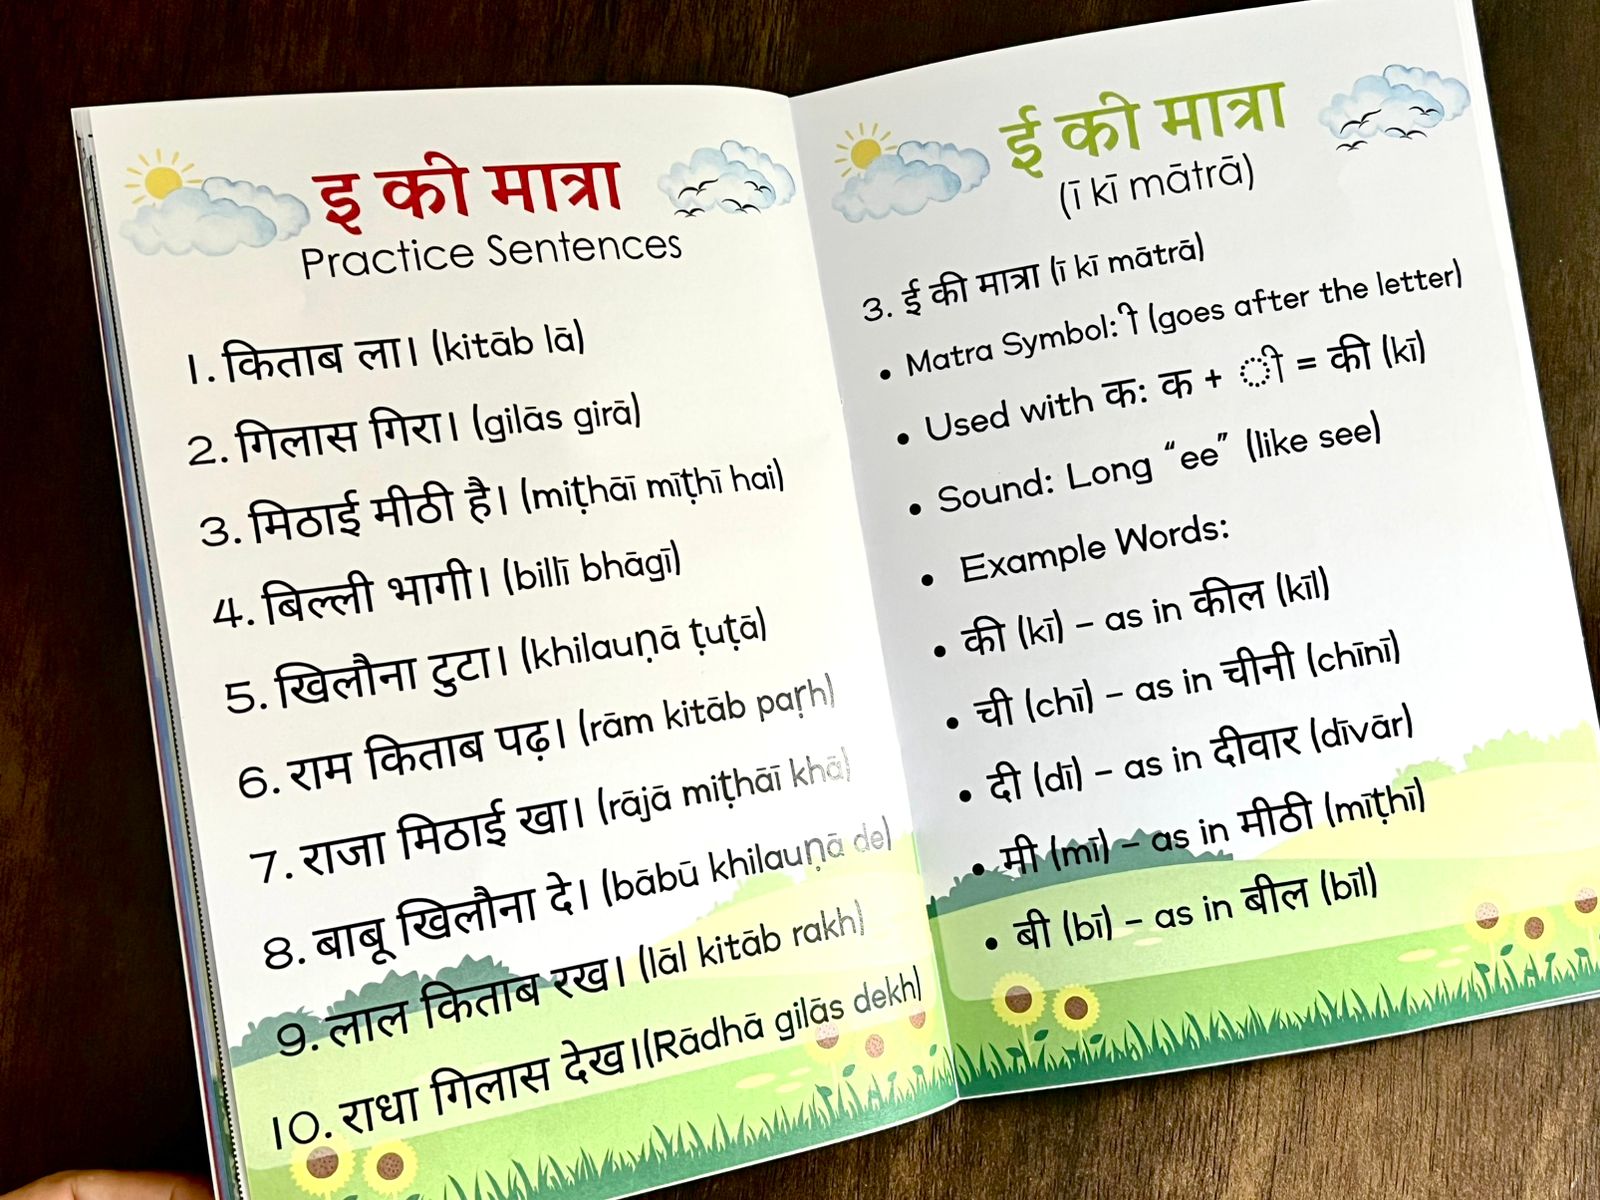 इ की मात्रा
Practice Sentences
1. किताब ला। (kitāb lā)
2. गिलास गिरा। (gilās girā)
3. मिठाई मीठी है। (miṭhāī mīṭhī hai)
4. बिल्ली भागी। (billī bhāgī)
5. खिलौना टुटा। (khilauṇā ṭuṭā)
6. राम किताब पढ़। (rām kitāb paṛh)
7. राजा मिठाई खा। (rājā miṭhāī khā)
8. बाबू खिलौना दे। (bābū khilauṇā de)
9. लाल किताब रख। (lāl kitāb rakh)
10. राधा गिलास देख।(Rādhā gilās dekh)
ई की मात्रा
(ī kī mātrā)
3. ई की मात्रा (ī kī mātrā)
• Matra Symbol: ी (goes after the letter)
• Used with क: क + ी = की (kī)
• Sound: Long “ee” (like see)
• Example Words:
• की (kī) – as in कील (kīl)
• ची (chī) – as in चीनी (chīnī)
• दी (dī) – as in दीवार (dīvār)
• मी (mī) – as in मीठी (mīṭhī)
• बी (bī) – as in बील (bīl)